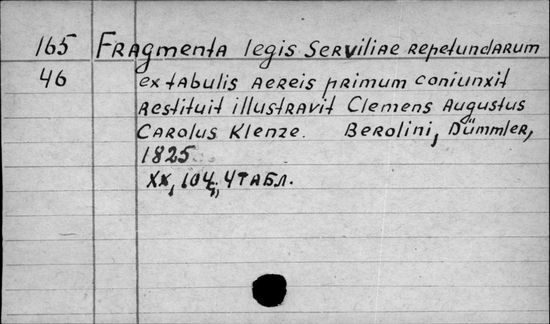 165 Fragmenta legis Serviliae repetundarum
46 ex tabulis aereis primum coniunxit
restituit illustravit Clemens Augustus
Carolus Klenze. Berolini, Dümmler,
1825
XX, 104 с., 4 табл.